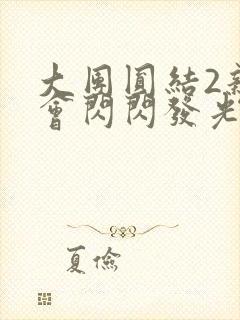 大團圓結2
會閃閃發光
夏儉